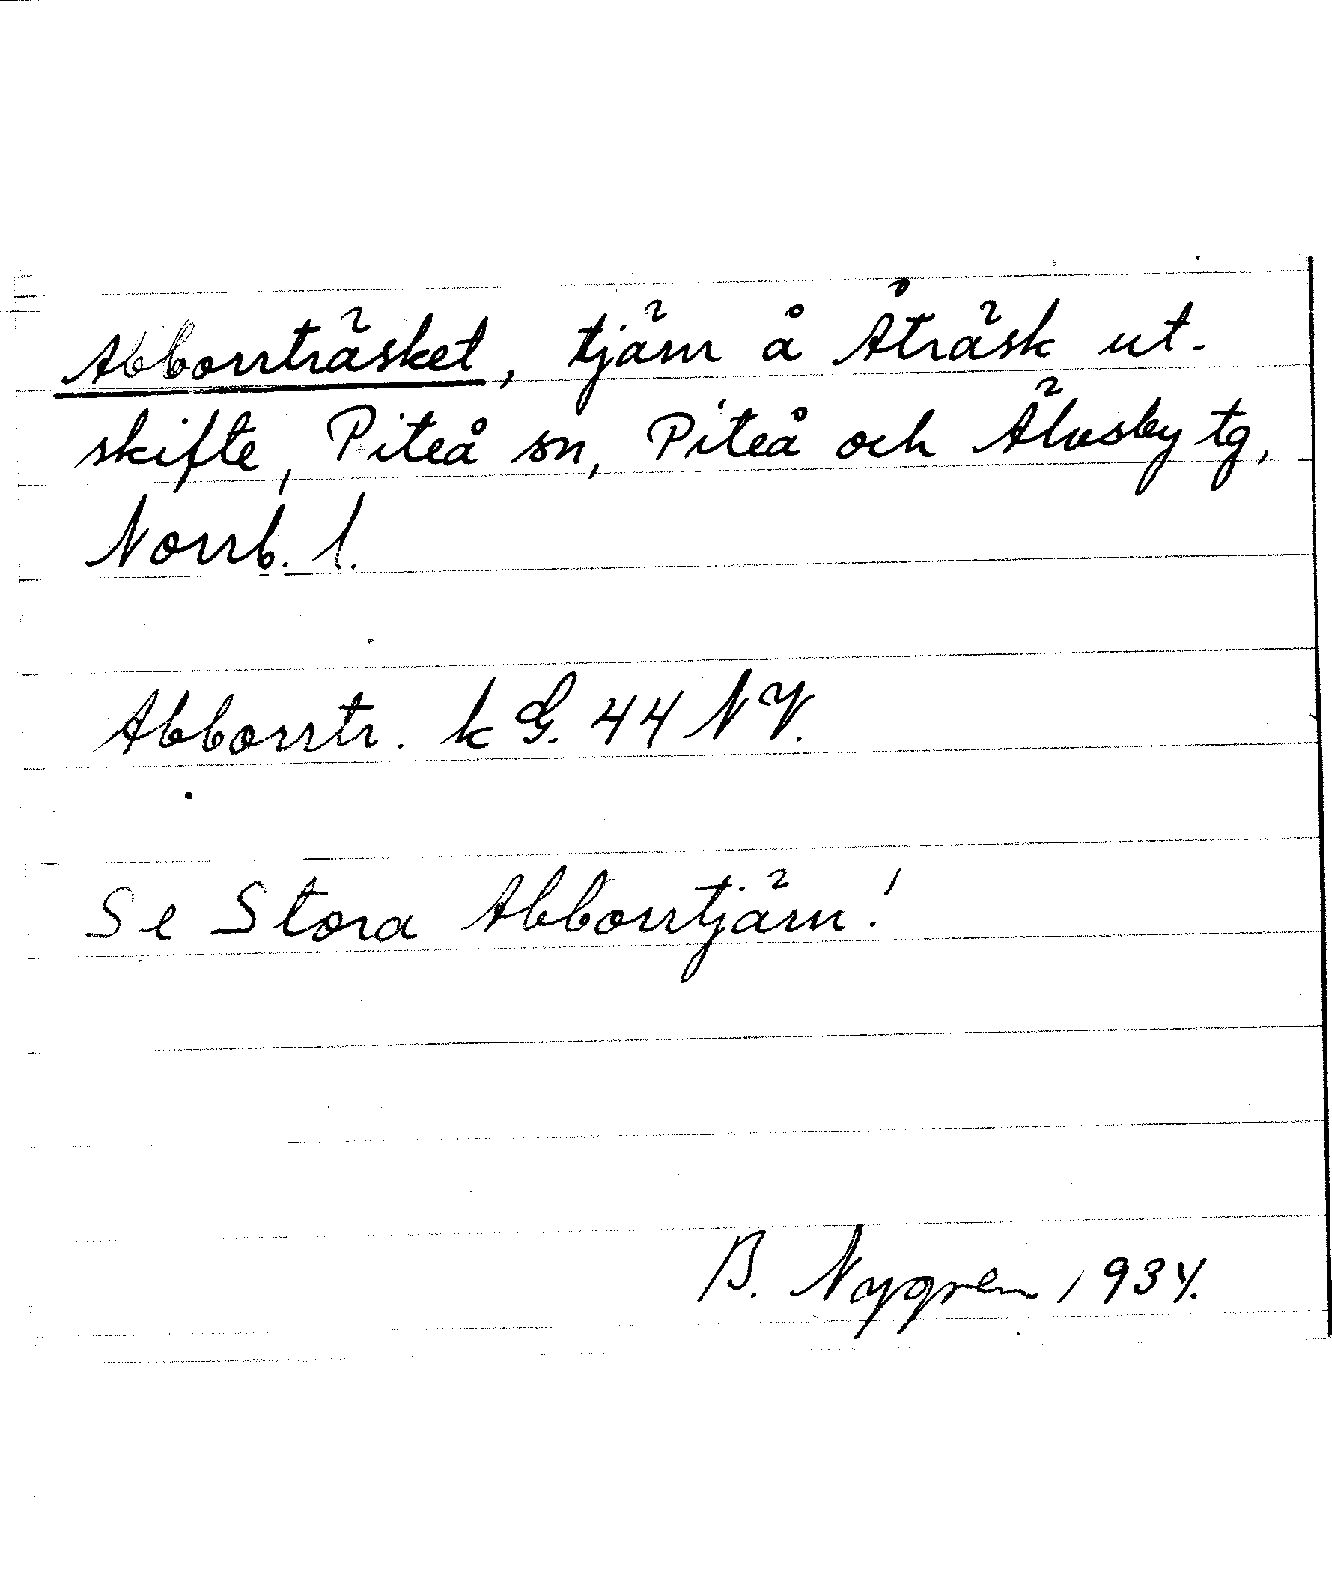 Abborrträsket, tjärn å Åträsk ut-
skifte, Piteå sn, Piteå och Älvsby tg,
Norrb. l.
Abborrtr. k G. 44 NV.
Se Stora Abborrtjärn!
B. Nygren 1934.